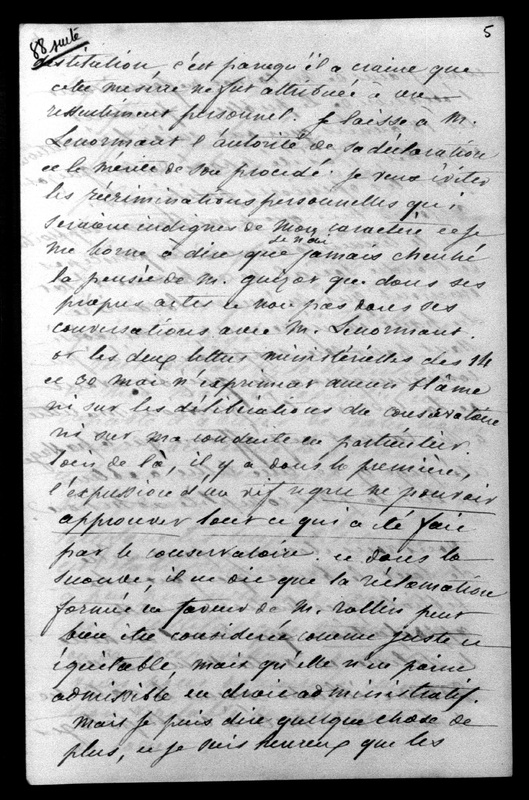 88 suite
5
destitution, c'est parcequ'il a craint que
cette mesure ne fut attribuée a un
ressentiment personnel. je laisse a M.
Lenormant l'autorité de sa déclaration
et le mérite de son procédé. je veux éviter
les récriminations personnelles qui
seraient indignes de mon caractère et je
me borne à dire que je n'ai jamais cherché
la pensée de M. guizot que dans ses
propres actes et non pas dans ses
conversations avec M. Lenormant.
or les deux lettres ministérielles des 14
et 30 mai n'expriment aucun blâme
ni sur les délibérations du conservatoire
ni sur ma conduite en particulier.
loin de là, il y a dans la première,
l'expression d'un vif regret de ne pouvoir
approuver tout ce qui a été fait
par le conservatoire. et dans la
seconde, il ne dit que la réclamation
formée en faveur de M. rollin peut
bien être considérée comme juste et
équitable mais qu'elle n'en parait
admissible en droit administratif.
mais je puis dire quelque chose de
plus, et je suis heureux que les